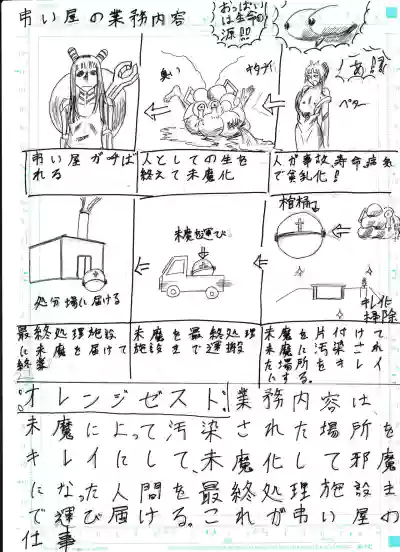 弔い屋の業務内容
おっぱい
は生命の
源!!
あ!!
ペター
臭い
人が事故、寿命、病気
で貧乳化!
人としての生を
終えて未魔化
弔い屋が呼ば
れる
棺桶
キレイに
掃除
未魔を運び
処分場に届ける
未魔を片付けて
未魔に汚染され
た場所をキレイ
にする。
未魔を最終処理
施設まで運搬
最終処理施設
に未魔を届けて
終業
オレンジゼスト:業務内容は、
未魔によって汚染された場所を
キレイにして、未魔化して邪魔
になった人間を最終処理施設ま
で運び届ける。これが弔い屋の
仕事